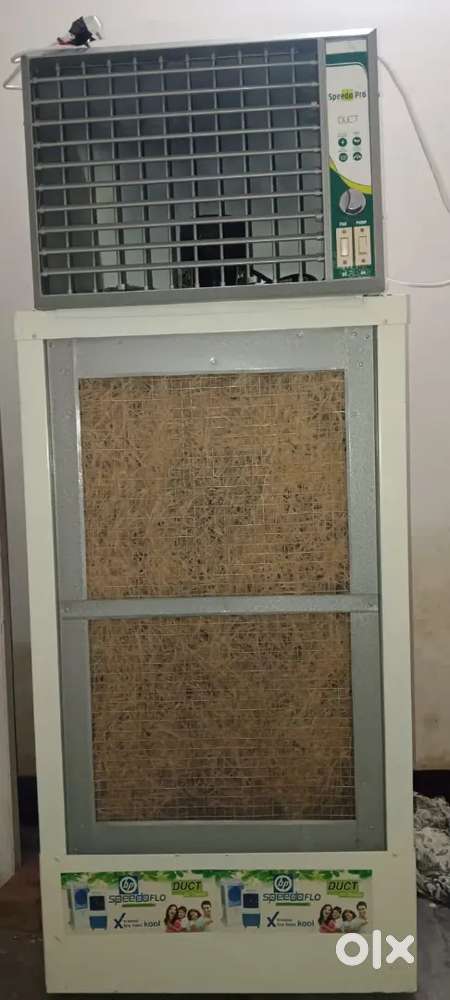 Speedo Pro
DUCT
FAN
PUMP
hp
speedoFLO
DUCT
X
kool
hp
speedoFLO
DUCT
X
kool
olx